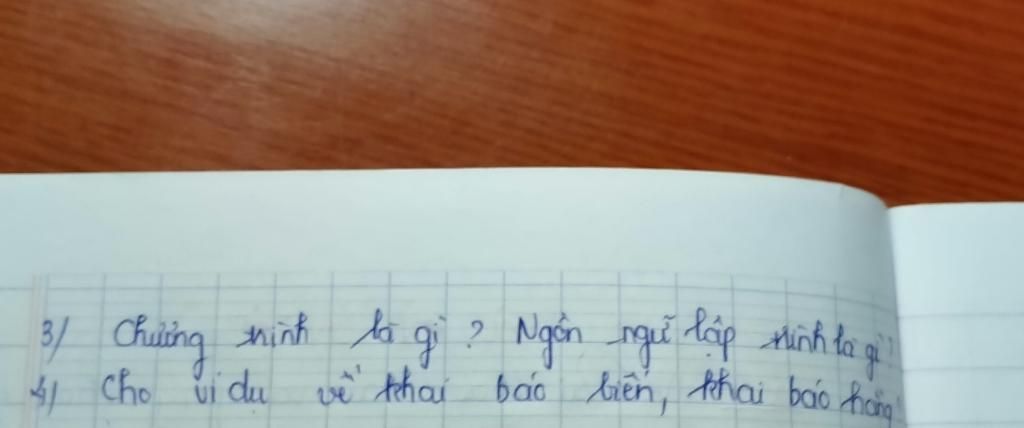 3/ Chương trình là gì? Ngôn ngữ lập trình là gì?
4/ Cho ví dụ về khai báo biến, khai báo hằng